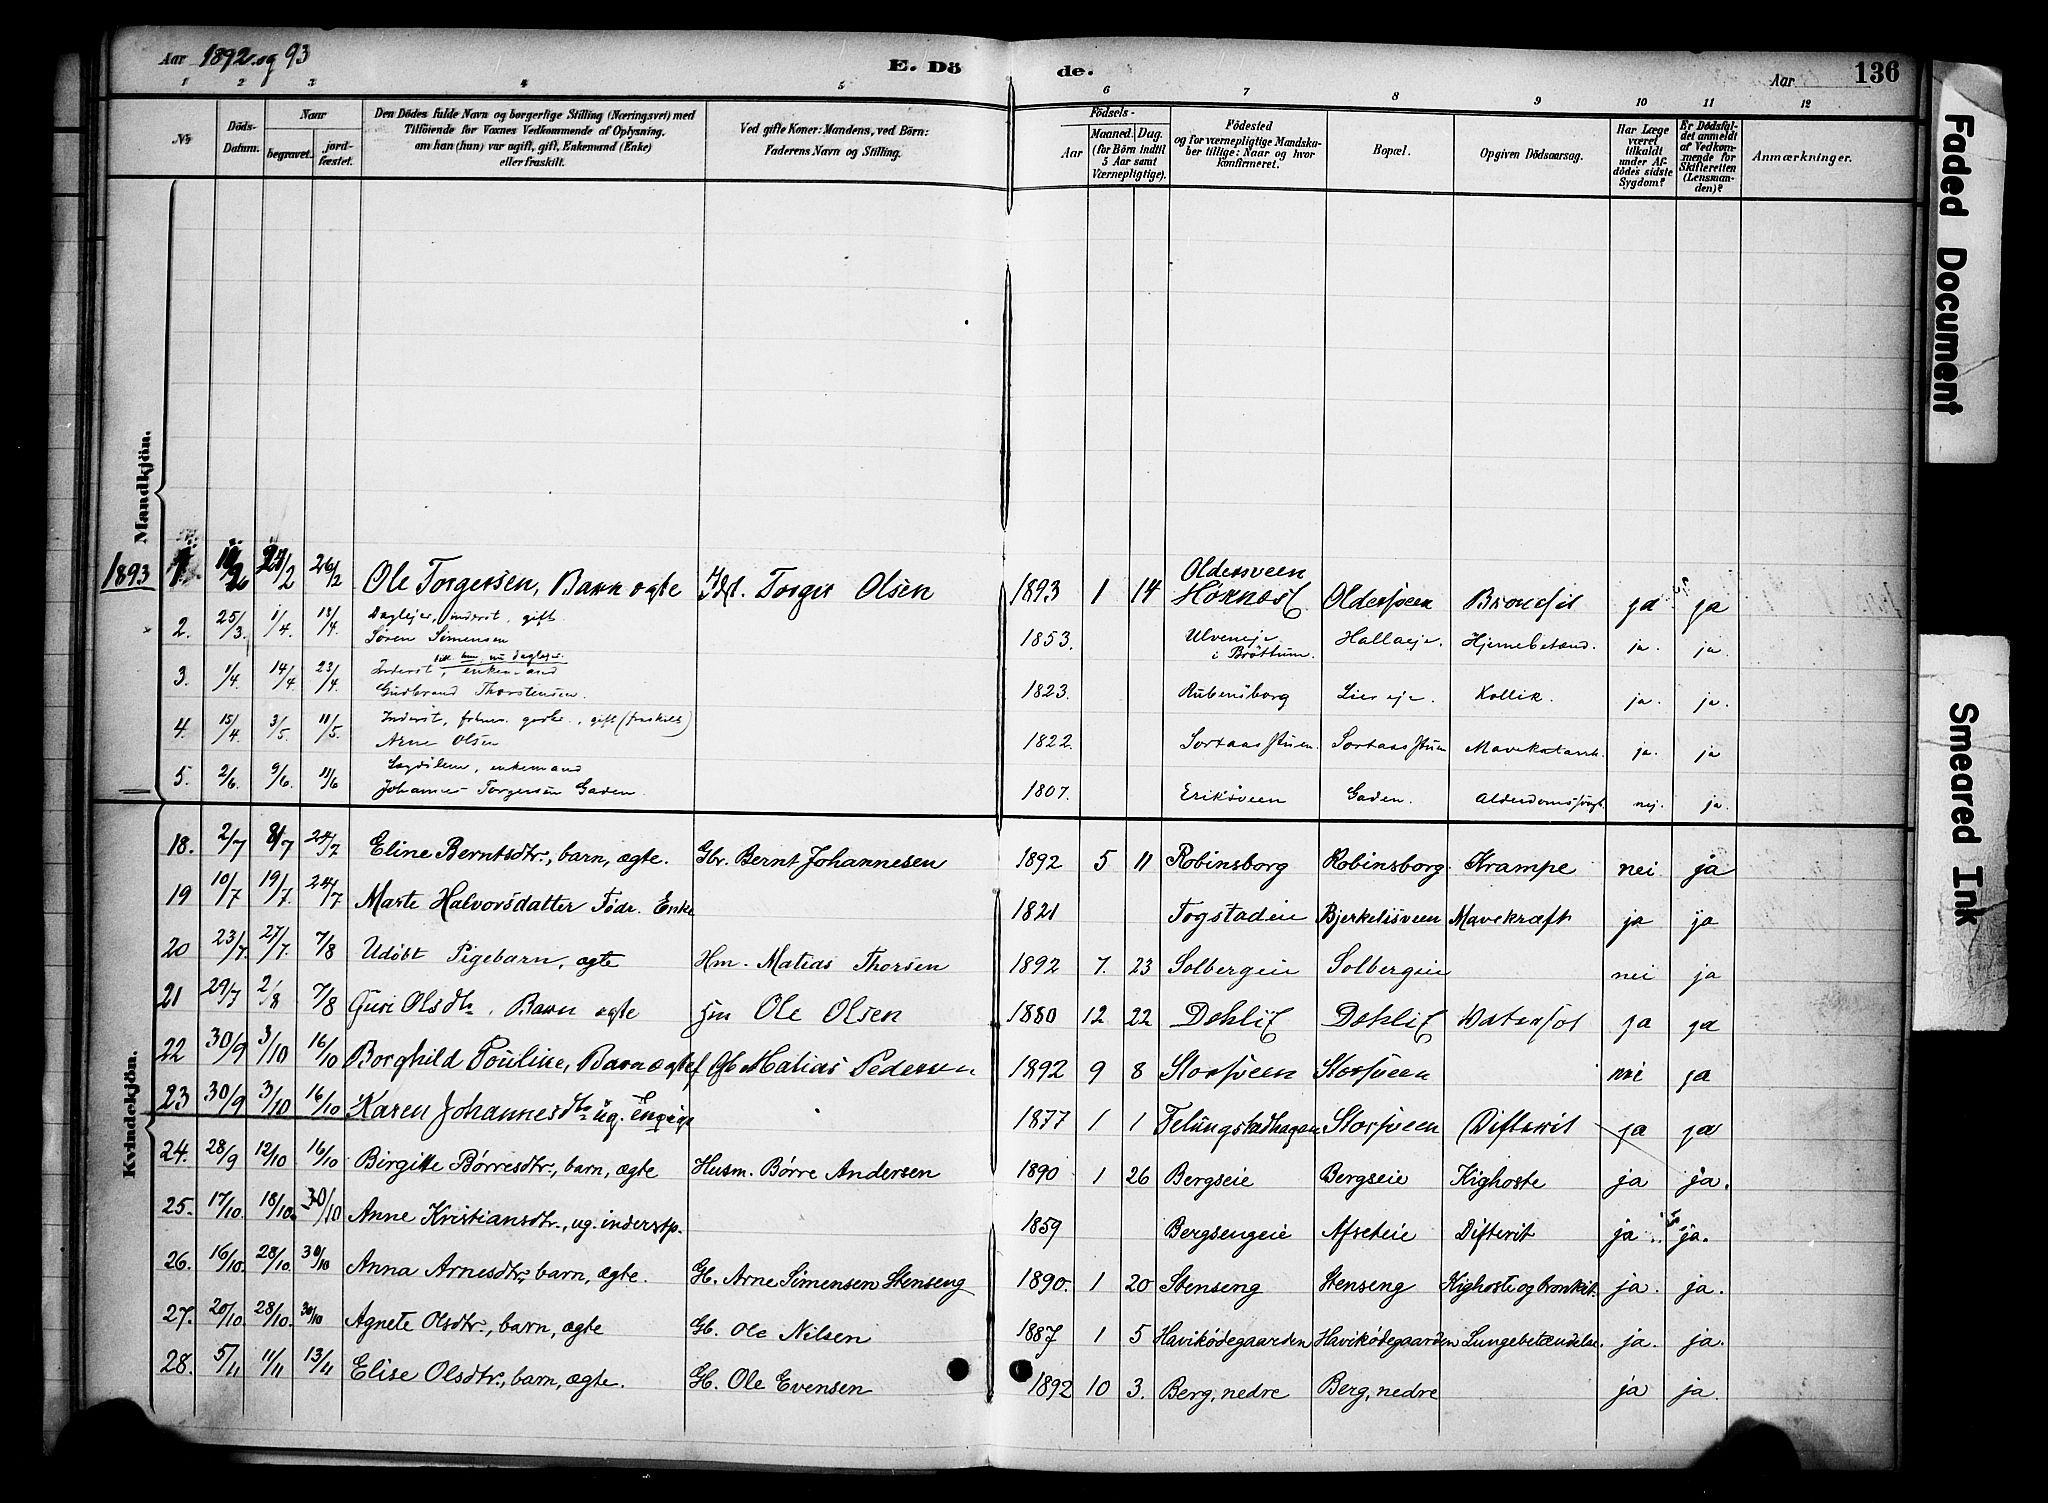 Aar 1892 og 93
E. Döde.
Aar 136
1 2 3 4 5 6 7 8 9 10 11 12
No
Döds-Datum.
Naar
begravet.
jord-fæstet.
Den Dödes fulde Navn og borgerlige Stilling (Næringsvei) med
Tilföiende for Voxnes Vedkommende af Oplysning,
om han (hun) var ugift, gift, Enkemand (Enke)
eller fraskilt.
Ved gifte Koner: Mandens, ved Börn:
Faderens Navn og Stilling.
Födsels-
Aar
Maaned. Dag.
(for Börn indtil
5 Aar samt
Værnepligtige).
Födested
og for værnepligtige Mandska-
ber tillige: Naar og hvor
konfirmeret.
Bopæl.
Opgiven Dödsaarsag.
Har Læge
været
tilkaldt
under Af-
dödes sidste
Sygdom?
Er Dödsfal-
det anmeldt
af Vedkom-
mende for
Skifteretten
(Lensman-
den)?
Anmærkninger.
Mandkjön.
1893 1. 24/2 26/2 Ole Torgersen, Barn ægte Torger Olsen 1893 1 14 Oldersveen Oldersveen Bronchit ja ja
2. 25/3. 1/4. 18/4. Daglejer, inderst, gift. Søren Simensen 1853. Ulveneje i Brøttum. Hallaeje. Hjernebetænd. ja. ja.
3. 1/4. 14/4. 23/4 Inderst, enkemand Gudbrand Thorstensen. 1823. Rubensborg Lier eje. Kollik. ja. ja.
4. 15/4. 3/5. 11/5. Inderst, gift (fraskilt) Arne Olsen 1822. Sortaasstuen. Sortaasstuen Mavekatarrh ja. ja
5. 2/6. 9/6. 11/6 enkemand Johannes Torgersen Gaden. 1807. Eriksveen Gaden. Alderdomssvagh. nej. ja.
Kvindekjön.
18. 2/7 8/7 24/7 Eline Berntsdtr., barn, ægte. Gbr. Bernt Johannesen 1892 5 11 Robinsborg Robinsborg. Krampe nei ja
19 10/7 19/7. 24/7 Marte Halvorsdatter Födr. Enke 1821 Togstadeie Bjerkelisveen Mavekræft ja ja
20 23/7. 27/7. 7/8 Udøbt Pigebarn, ægte Hm. Matias Thorsen 1892 7. 23 Solbergeie Solbergeie nei ja
21 29/7 2/8 7/8 Guri Olsdtr, Barn ægte Hm Ole Olsen 1880 12 22 Dehli Dehli Vatersot ja ja
22 30/9 3/10 16/10 Borghild Pouline, Barn ægte Gb Matias Pedersen 1892 9 8 Storsveen Storsveen nei ja
23 30/9 3/10 16/10 Karen Johannesdtr ug. 1877 1 1 Felungstadhagen Storsveen Difterit ja ja
24. 28/9 12/10 16/10 Birgitte Børresdtr., barn, ægte Husm. Børre Andersen 1890 1 26 Bergseie Bergseie Kighoste ja ja.
25. 17/10. 18/10. 30/10 Anne Kristiansdtr., ug. inderstp. 1859 Bergsengeie Afseteie Difterit ja. ja.
26. 16/10. 28/10. 30/10 Anna Arnesdtr., barn, ægte. Gb. Arne Simensen Stenseng 1890. 1 20 Stenseng Stenseng Kighoste og bronkit. ja. ja.
27. 20/10. 28/10. 30/10 Agnete Olsdtr., barn, ægte Gb. Ole Nilsen 1887 1 5 Havikødegaarden Havikødegaarden Lungebetændelse. ja. ja.
28. 5/11 11/11 13/11 Elise Olsdtr., barn, ægte. Gb. Ole Evensen 1892 10 3. Berg, nedre Berg, nedre ja ja.
Faded Document
Smeared Ink